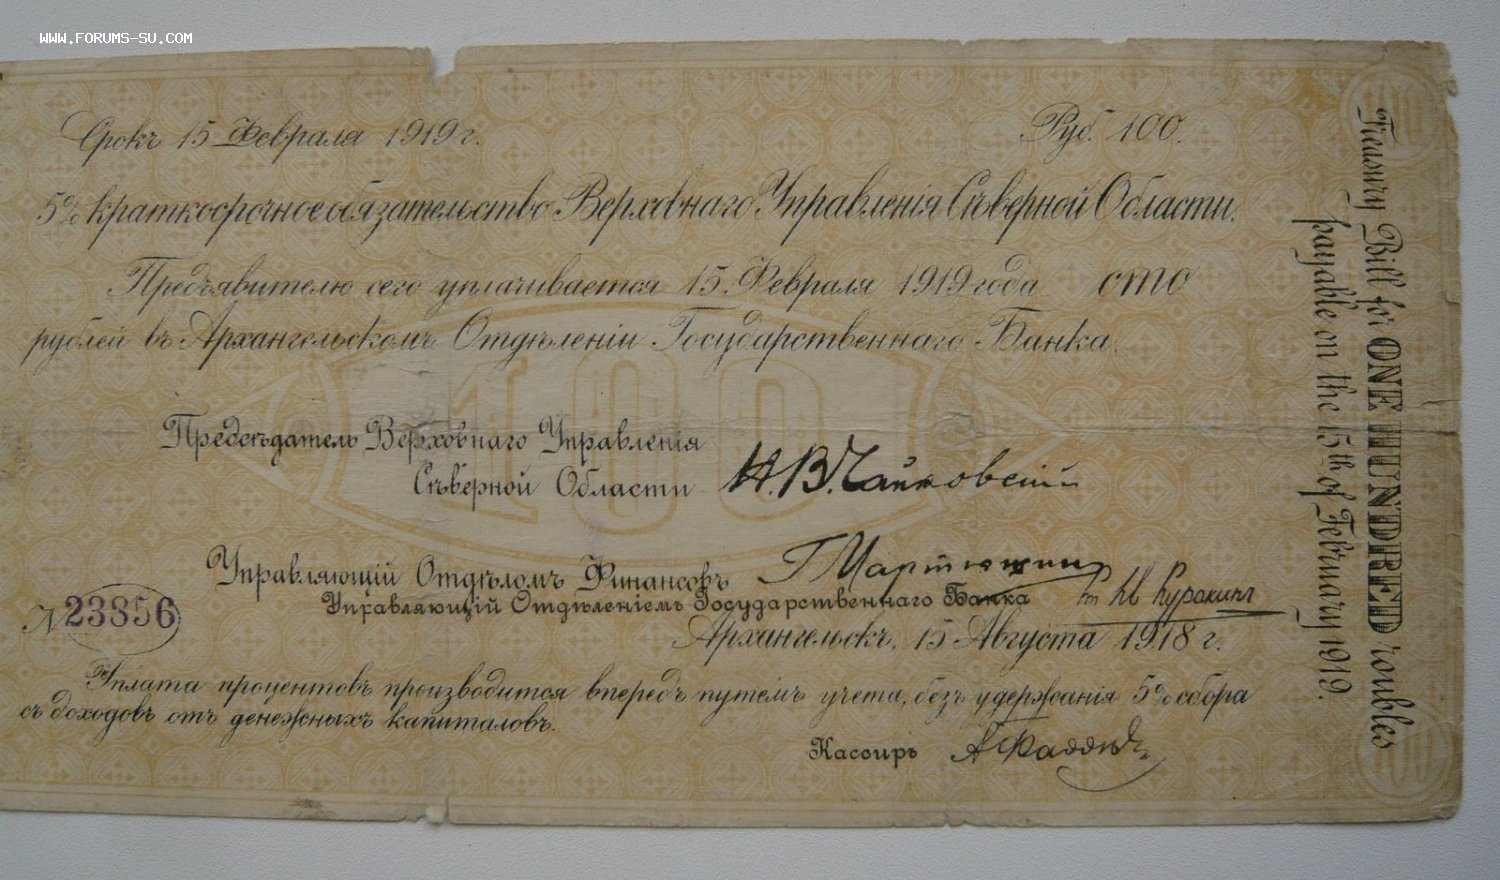 www.forums-su.com
Срокъ 15 Февраля 1919 г. Руб. 100.
5% краткосрочное обязательство Верховнаго Управленія Сѣверной Области.
Предъявителю сего уплачивается 15 Февраля 1919 года сто
рублей въ Архангельскомъ Отдѣленіи Государственнаго Банка.
100
Предсѣдатель Верховнаго Управленія
Сѣверной Области Н.В.Чайковскій
Управляющій Отдѣломъ Финансовъ Г Мартюшинъ
Управляющій Отдѣленіемъ Государственнаго Банка Куракинъ
№ 23856
Архангельскъ, 15 Августа 1918 г.
Уплата процентовъ производится впередъ путемъ учета, безъ удержанія 5% сбора
съ доходовъ отъ денежныхъ капиталовъ.
Кассиръ
Treasury Bill for ONE HUNDRED roubles
payable on the 15th of February 1919.
100
100